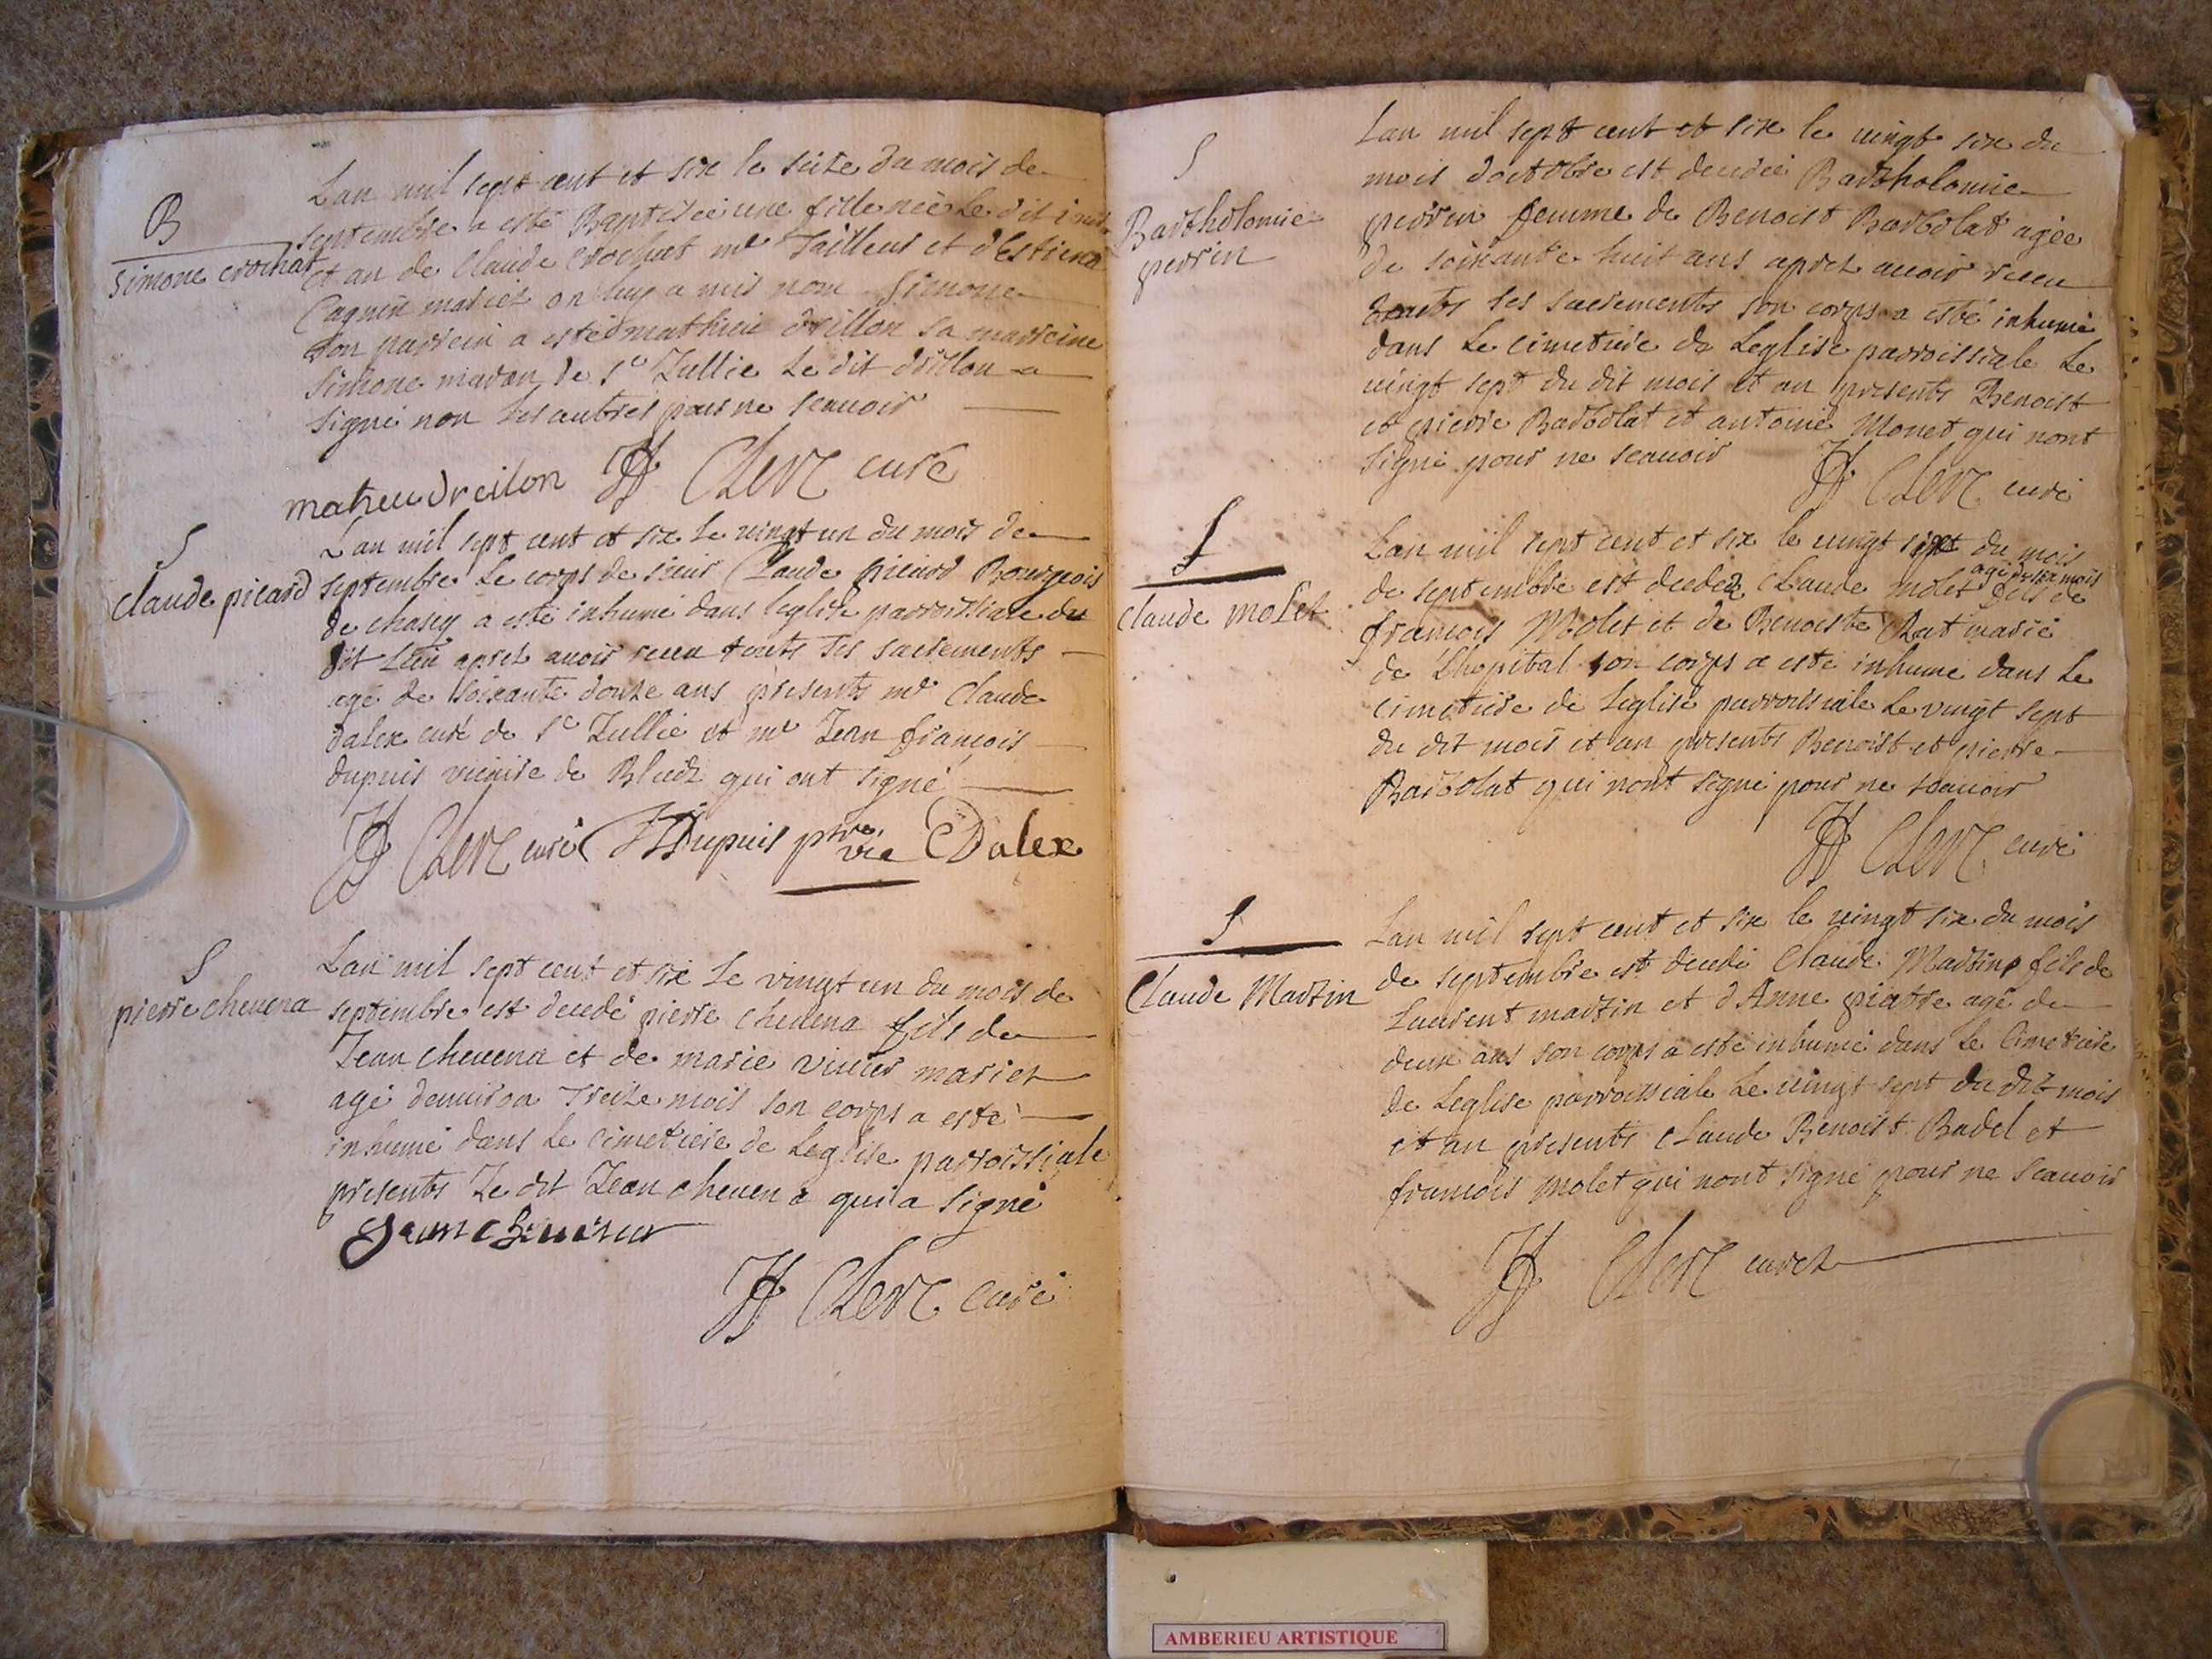 B
Simone crochat
Lan mil sept cent et six le seize du mois de
septembre a esté Baptisée une fille née le dit
et an de Claude Crochat me Tailleur et d'Estiena
mariez on luy a mis nom Simone
son parrein a esté mathieu drillon sa marreine
Simone de St Jullie le dit drillon a
signé non les autres pour ne scauoir
matieu dreilon JJ Clerc curé
S
Claude picard
Lan mil sept cent et six le vingt un du mois de
septembre le corps de sieur Claude picard Bourgeois
de chasey a esté inhumé dans leglise parroissiale du
dit lieu aprez auoir receu touts ses sacrements
agé de soixante douze ans presents mr Claude
dalex curé de St Jullie et mr Jean francois
dupuis vicaire de Bleidz qui ont signé
JJ Clerc curé JDupuis ptre vic CDalex
S
pierre cheuena
Lan mil sept cent et six le vingt un du mois de
septembre est decedé pierre cheuena fils de
Jean cheuena et de marie mariez
agé denuiron treize mois son corps a esté
inhumé dans le cimetiere de leglise parroissiale
presents le dit Jean cheuena qui a signé
Jean cheuena
JJ Clerc curé
S
Bartholomie
perrin
Lan mil sept cent et six le vingt six du
mois doctobre est decedée Bartholomie
perrin femme de Benoist Barbolat agée
de soixante huit ans aprez auoir receu
touts ses sacrements son corps a esté inhumé
dans le cimetiere de leglise parroissiale le
vingt sept du dit mois et an presents Benoist
et pierre Barbolat et antoine Monet qui nont
signé pour ne scauoir
JJ Clerc curé
S
Claude molet
Lan mil sept cent et six le vingt du mois
agé de six mois
de septembre est decedez Claude molet fils de
francois Molet et de Benoiste Rat marié
de Lhopital son corps a esté inhumé dans le
cimetiere de leglise parroissiale le vingt sept
du dit mois et an presents Benoist et pierre
Barbolat qui nont signé pour ne scauoir
JJ Clerc curé
S
Claude Martin
Lan mil sept cent et six le vingt six du mois
de septembre est decedé Claude Martin fils de
Laurent martin et d'Anne piatre agé de
deux ans son corps a esté inhumé dans le Cimetiere
de Leglise parroissiale le vingt sept du dit mois
et an presents Claude Benoist Badel et
francois molet qui nont signé pour ne scauoir
JJ Clerc curez
AMBERIEU ARTISTIQUE